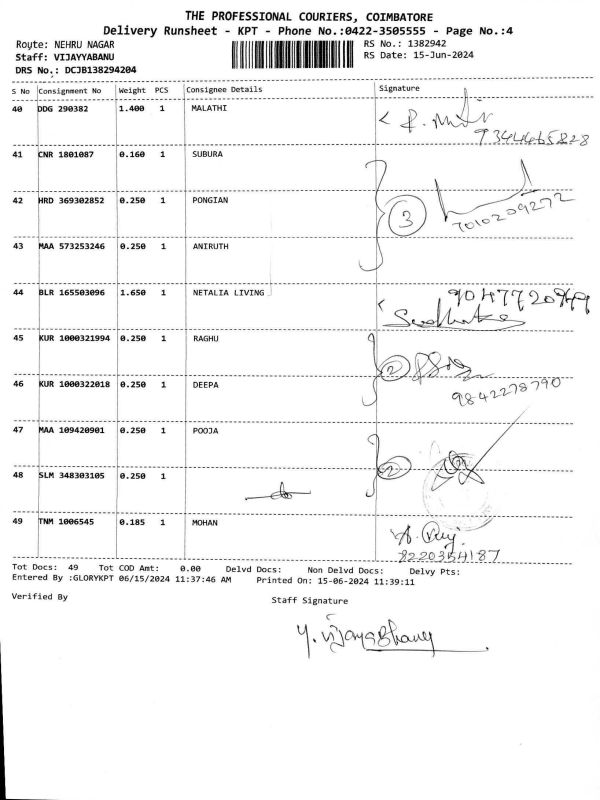 THE PROFESSIONAL COURIERS, COIMBATORE
Delivery Runsheet - KPT - Phone No.:0422-3505555 - Page No.:4
Route: NEHRU NAGAR RS No.: 1382942
Staff: VIJAYYABANU RS Date: 15-Jun-2024
DRS No.: DCJB138294204
S No Consignment No Weight PCS Consignee Details Signature
40 DDG 290382 1.400 1 MALATHI
9344465828
41 CNR 1801087 0.160 1 SUBURA
42 HRD 369302852 0.250 1 PONGIAN 3
7010209272
43 MAA 573253246 0.250 1 ANIRUTH
44 BLR 165503096 1.650 1 NETALIA LIVING
45 KUR 1000321994 0.250 1 RAGHU
2
46 KUR 1000322018 0.250 1 DEEPA
9842278790
47 MAA 109420901 0.250 1 POOJA
2
48 SLM 348303105 0.250 1
49 TNM 1006545 0.185 1 MOHAN
Tot Docs: 49 Tot COD Amt: 0.00 Delvd Docs: Non Delvd Docs: Delvy Pts:
Entered By :GLORYKPT 06/15/2024 11:37:46 AM Printed On: 15-06-2024 11:39:11
Verified By Staff Signature